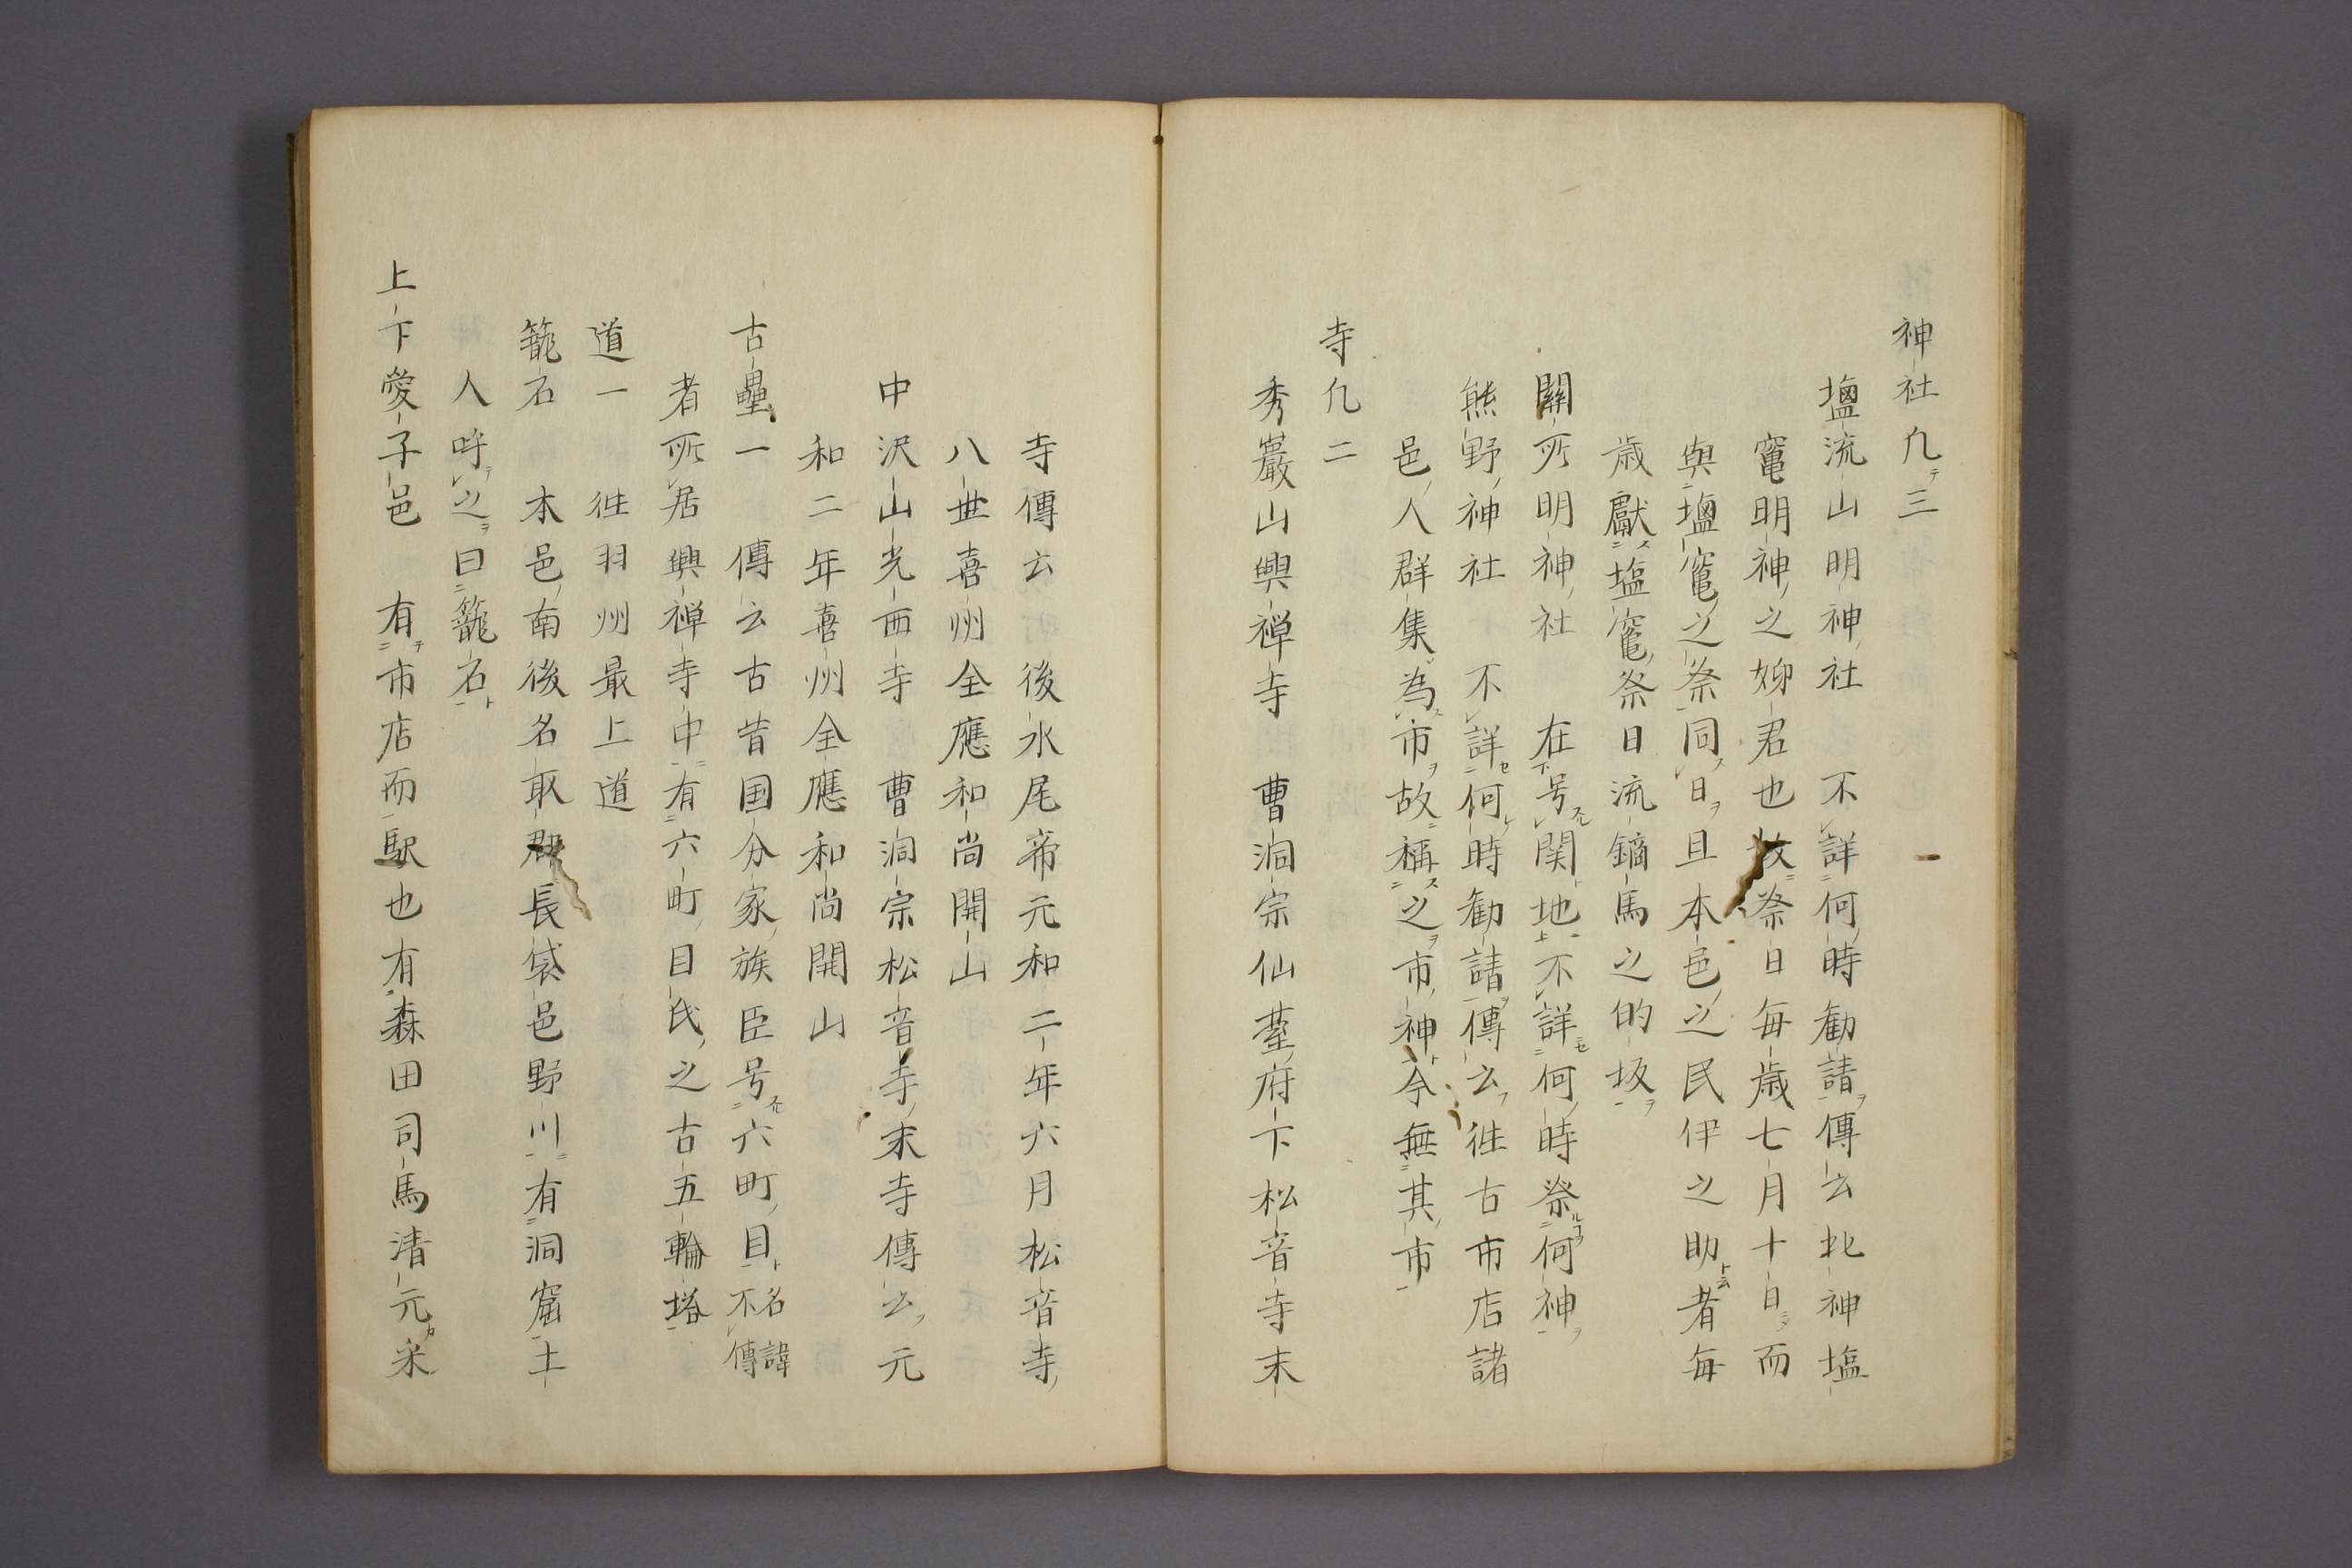 神社凢三
塩流山明神社 不詳何時勧請傳云北神塩
竃明神之妳君也故祭日毎歳七月十日而
與塩竃之祭同日且本邑之民伊之助者毎
歳獻塩竃祭日流鏑馬之的坂
關所明神社 在号関地不詳何時祭何神
熊野神社 不詳何時勧請傳云徃古市店諸
邑人群集為市故稱之市神今無其市
寺凢二
秀巖山興禅寺 曹洞宗仙䑓府下松音寺末
寺傳云 後水尾帝元和二年六月松音寺
八世喜州全應和尚開山
中沢山光西寺 曹洞宗松音寺末寺傳云元
和二年喜州全應和尚開山
古壘一 傳云古昔国分家族臣号六町目名諱不傳
者所居興禅寺中有六町目氏之古五輪塔
道一 徃羽州最上道
籠石 本邑南後名取郡長袋邑野川有洞窟土
人呼之曰籠石
上下愛子邑 有市店而駅也有森田司馬清元采